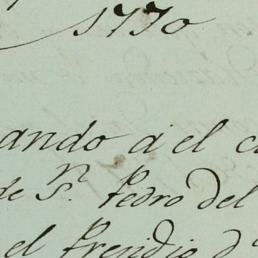 1770
ando á el c
de Sn. Pedro del
el Presidio d